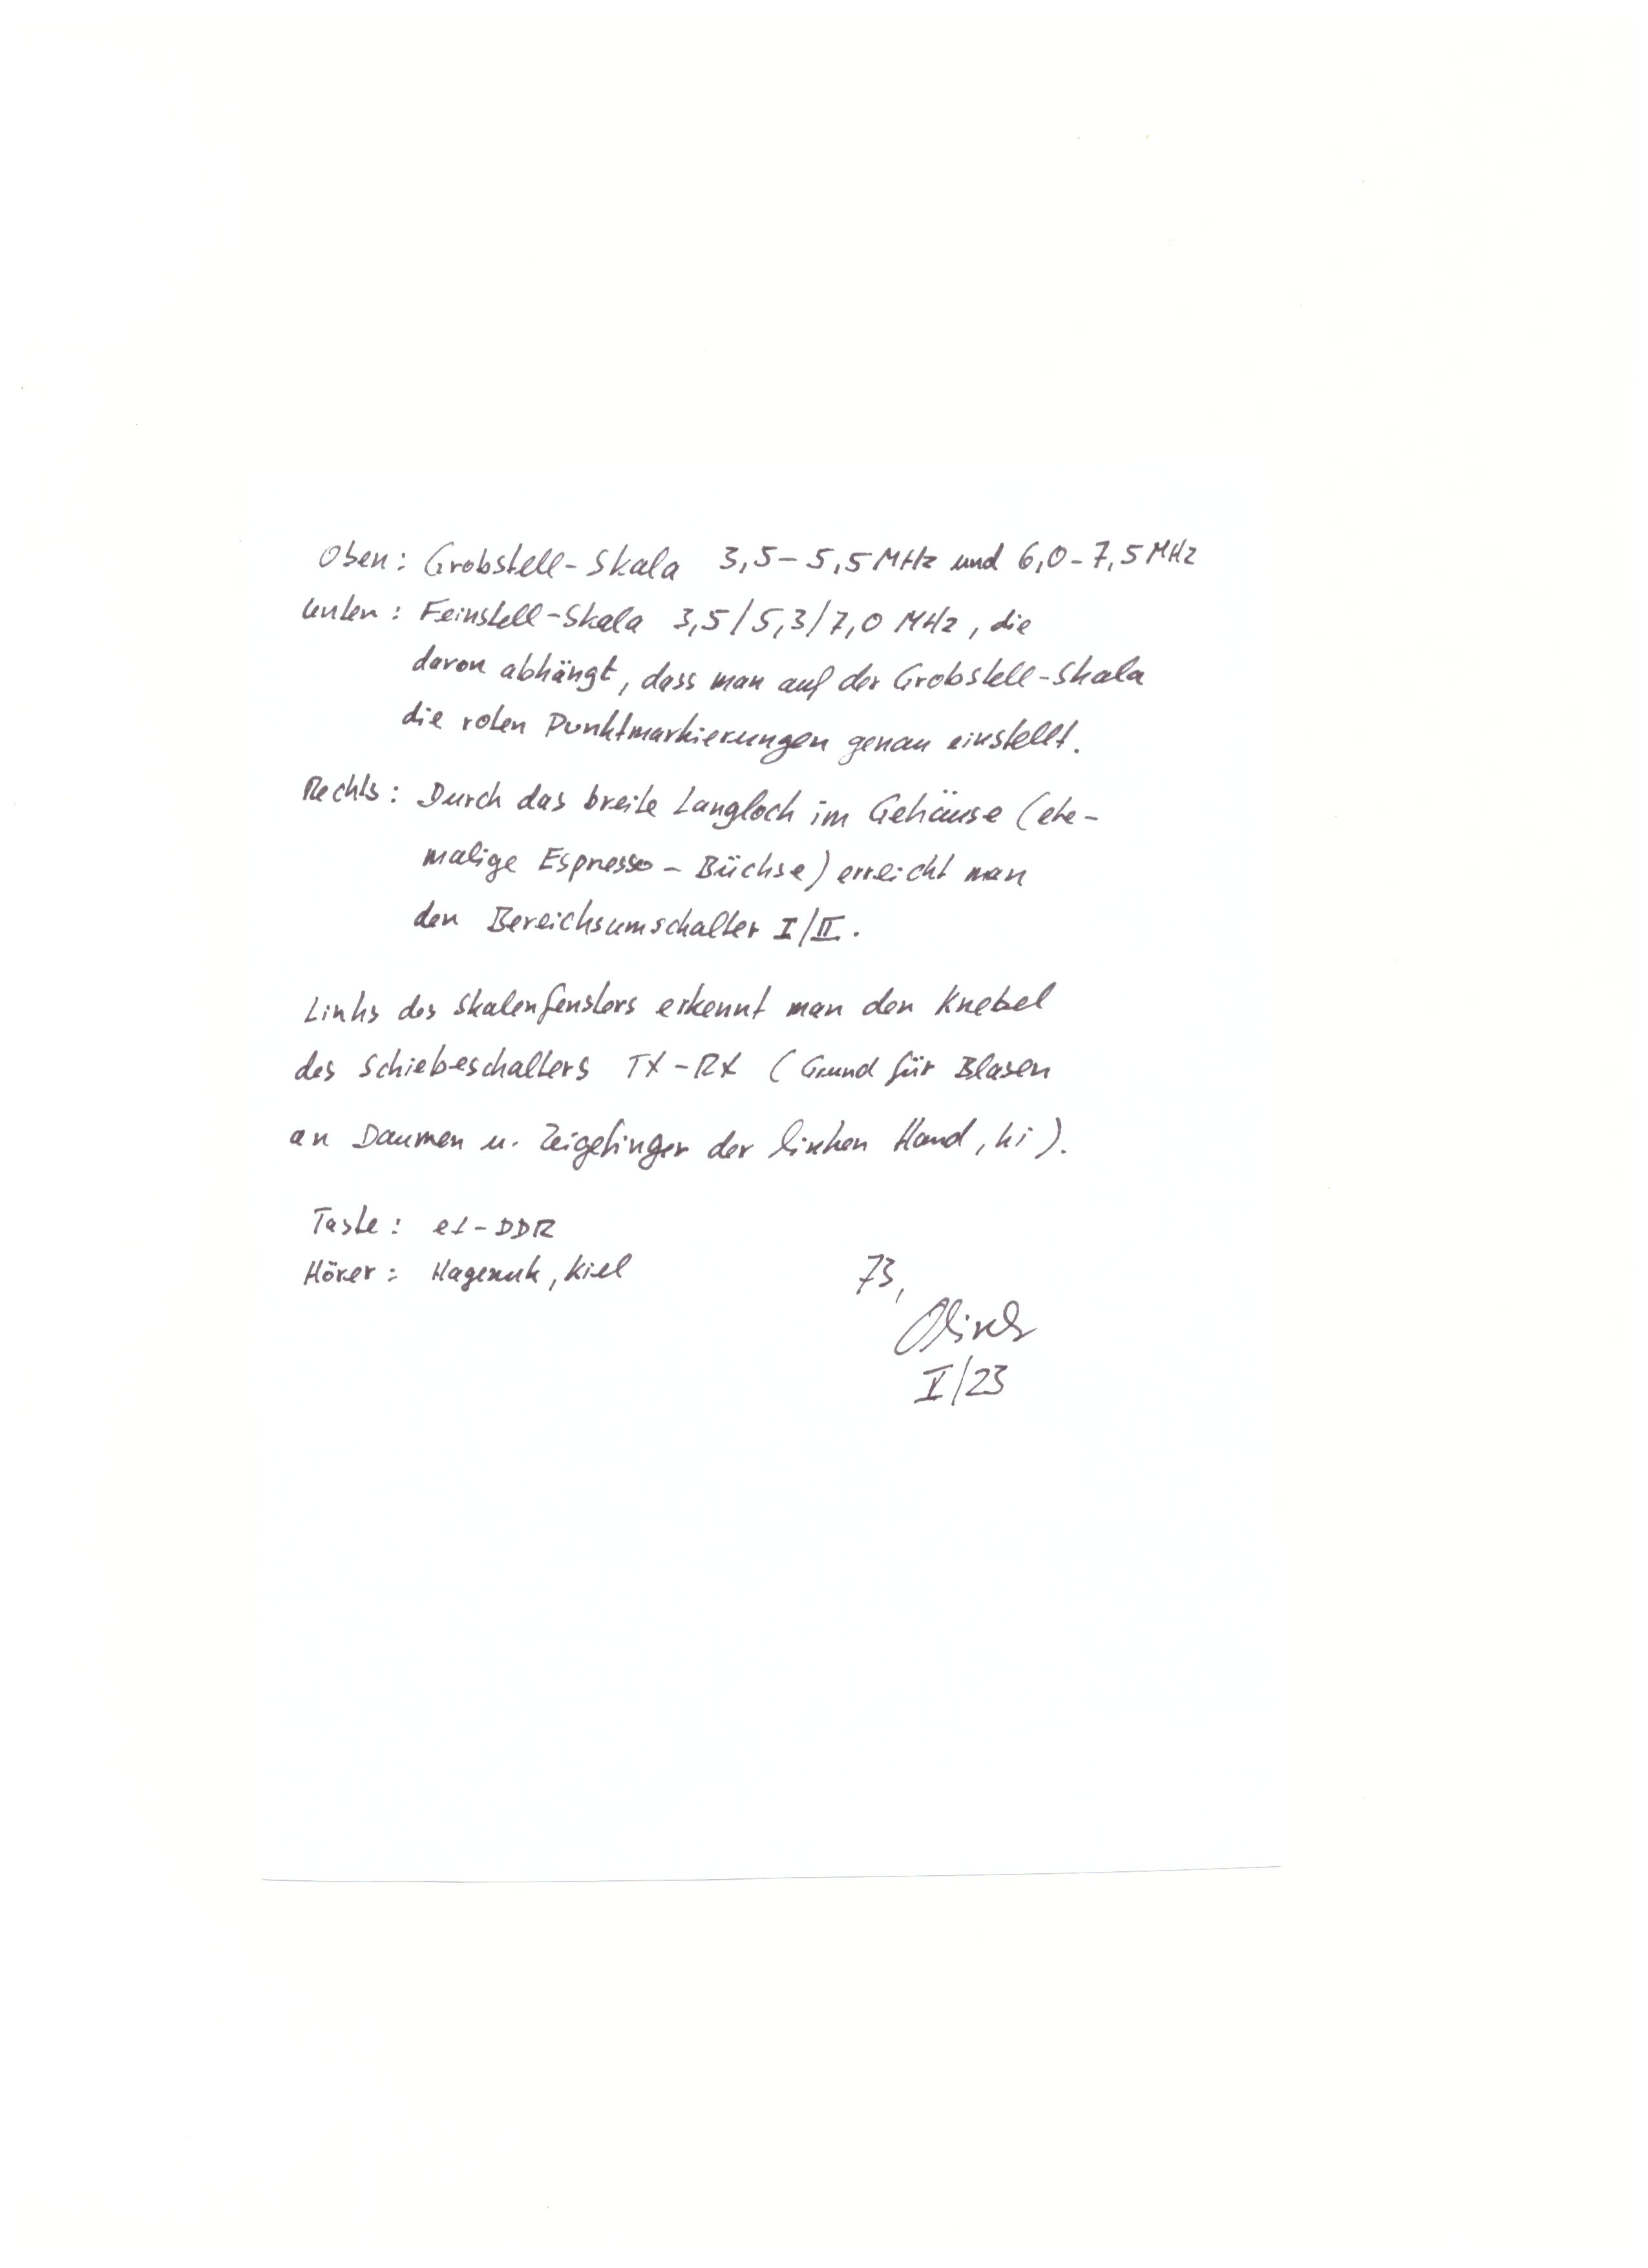 Oben: Grobstell-Skala 3,5-5,5 MHz und 6,0-7,5 MHz
Unten: Feinstell-Skala 3,5/5,3/7,0 MHz, die
davon abhängt, dass man auf der Grobstell-Skala
die roten Punktmarkierungen genau einstellt.
Rechts: Durch das breite Langloch im Gehäuse (ehe-
malige Espresso-Büchse) erreicht man
den Bereichsumschalter I/II.
Links des Skalenfensters erkennt man den Knebel
des Schiebeschalters TX-RX (Grund für Blasen
an Daumen u. Zeigefinger der linken Hand, hi).
Taste: ex-DDR
Hörer: Hagenuk, Kiel
73,
V/23